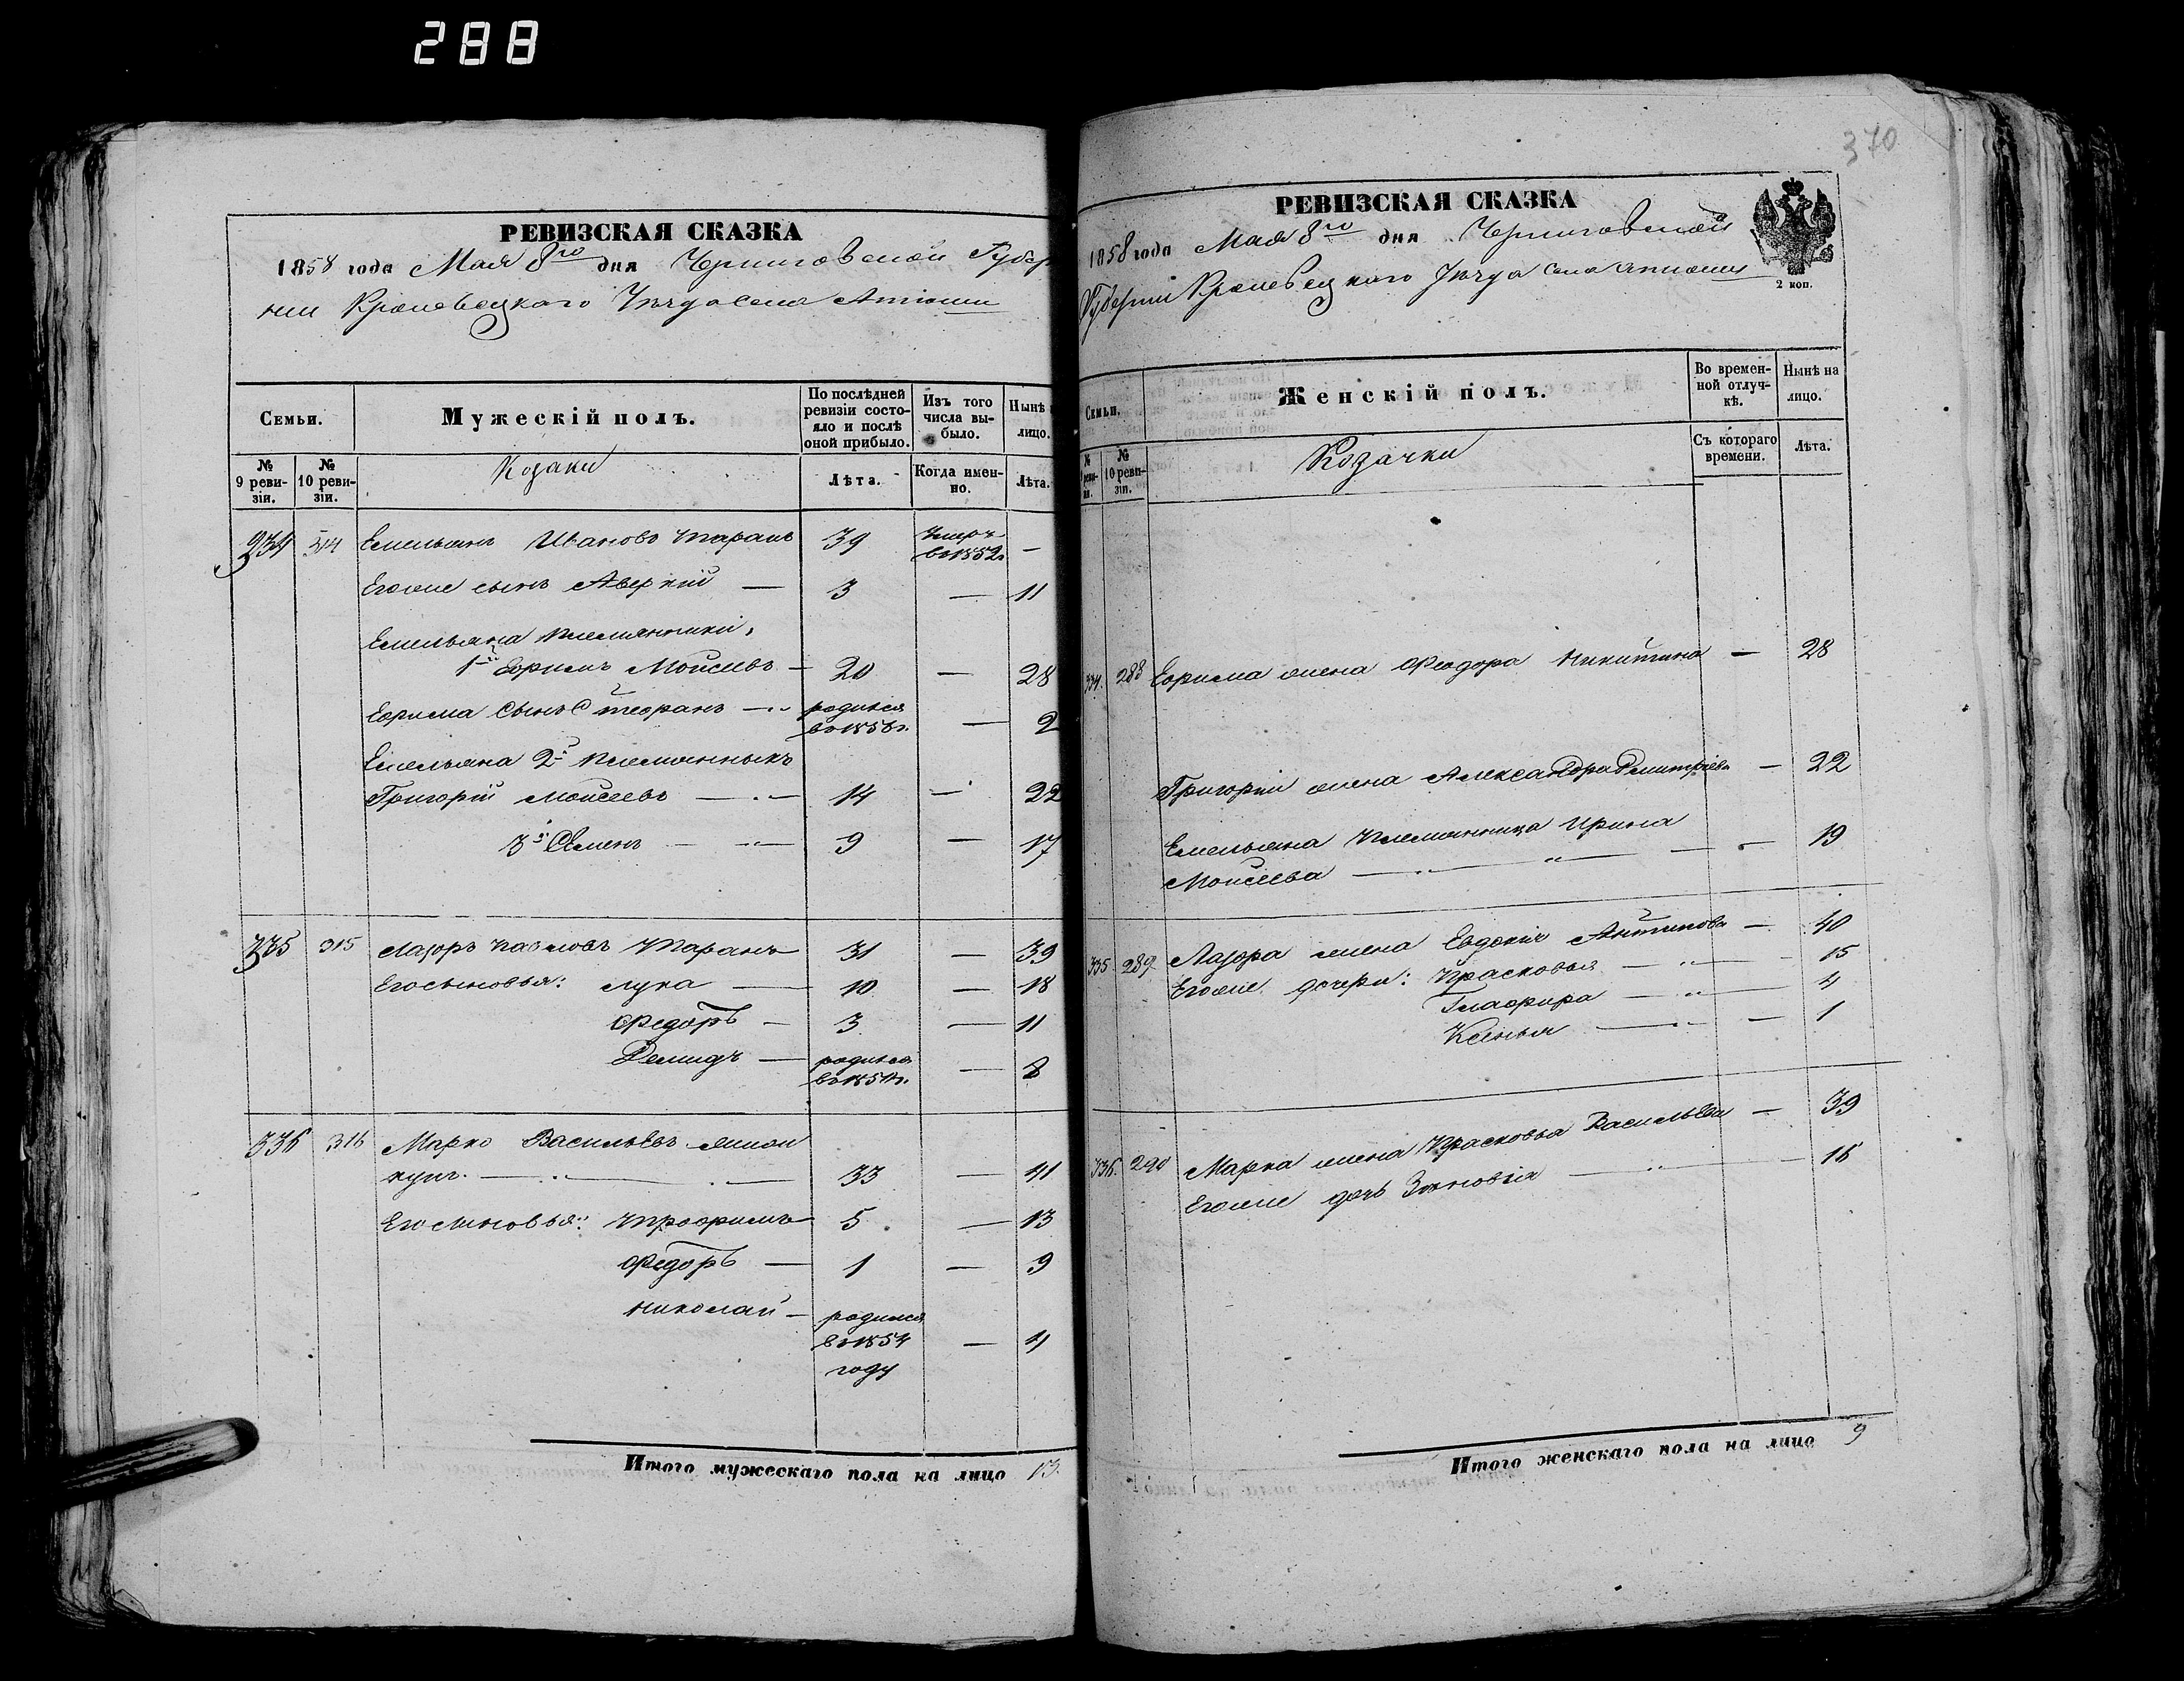 288
РЕВИЗСКАЯ СКАЗКА
1858 года Мая 8го дня Черниговской Губер
нии Кролевецкаго Уѣзда села Антоны
Семьи.
Мужескій полъ.
По послѣдней
ревизіи состо-
яло и послѣ
оной прибыло.
Изъ того
числа вы-
было.
Нынѣ
лицо.
№
9 реви-
зіи.
№
10 реви-
зіи.
Козаки
Лѣта.
Когда имен-
но.
Лѣта.
234 314 Емельянъ Ивановъ Таранъ 39 Умеръ
въ 1852г. —
Егоже сынъ Аверкій — 3 — 11
Емельяна племянники,
1й Ефримъ Моисеевъ — 20 — 28
Ефрима сынъ Стефранъ — родился
въ 1856г. — 2
Емельяна 2й племянныкъ
Григорій Моисеевъ — 14 — 22
3й Семенъ — 9 — 17
335 315 Лавръ Павловъ Таранъ 31 — 39
Его сыновья: Лука — 10 — 18
Федоръ — 3 — 11
Демидъ — родился
— 8
336 316 Марко Васильевъ
33 — 41
Его сыновья: Трофримъ 5 — 13
Федоръ — 1 — 9
Николай — родился
въ 1854 — 4
году
Итого мужескаго пола на лицо 13.
370
РЕВИЗСКАЯ СКАЗКА
1858 года Мая 8го дня Черниговской
Губерніи Кролевецкаго Уѣзда села
2 коп.
Семьи.
Женскій полъ.
Во времен-
ной отлуч-
кѣ.
Нынѣ на
лицо.
№
№
10 реви-
зіи.
Козачки
Съ котораго
времени.
Лѣта.
334. 288 Ефрима жена Феодора Никитина — 28
Григорія жена Александра Дмитріева — 22
Емельяна племянница Ирина
Моисеева — 19
335. 289. Лавра жена Евдокія Антипова — 40
Егоже дочери: Прасковья — 15
Глафрира — 4
Ксенья — 1
336. 290 Марка жена Прасковья Васильева — 39
Егоже дочь Зѣновія — 16
Итого женскаго пола на лицо 9